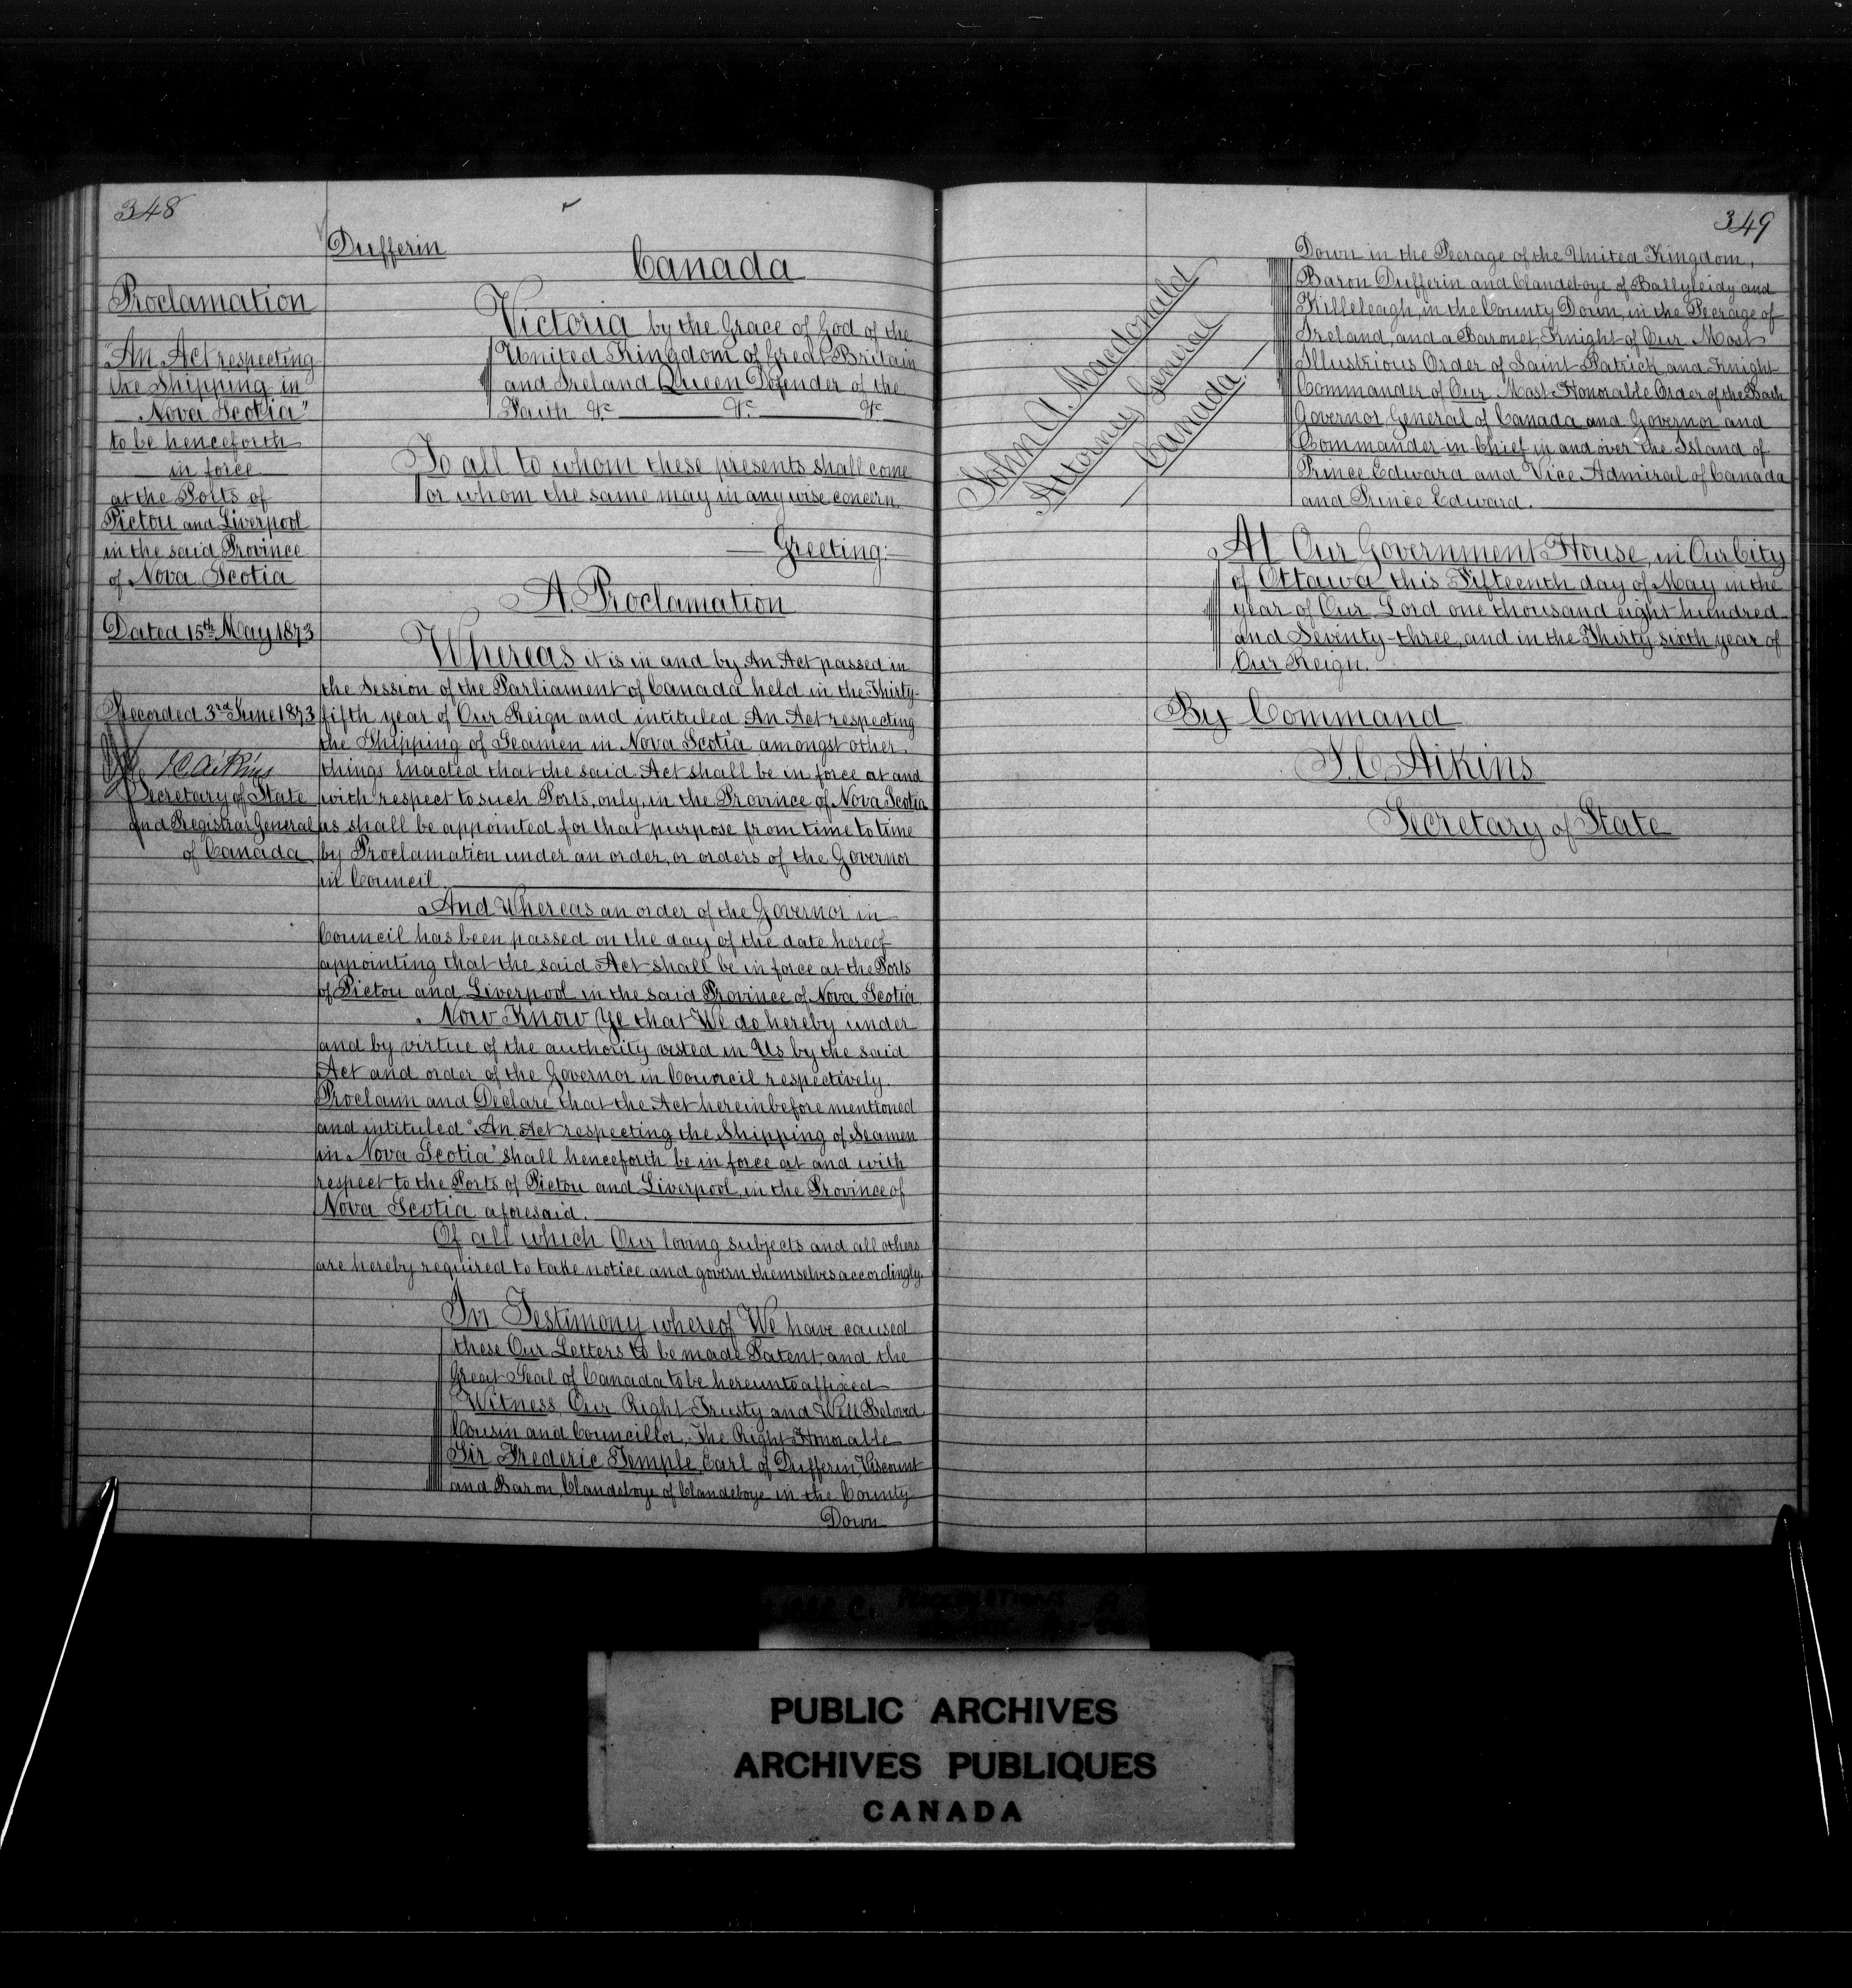 348
Proclamation
"An Act respecting
the Shipping in
Nova Scotia"
to be henceforth
in force
at the Ports of
Pictou and Liverpool
in the said Province
of Nova Scotia
Dated 15th May 1873
Recorded 3rd June 1873
J C Aikins
Secretary of State
and Registrar General
of Canada
Dufferin
Canada
Victoria by the Grace of God of the
United Kingdom of Great Britain
and Ireland Queen Defender of the
Faith &c &c &c
To all to whom these presents shall come
or whom the same may in any wise concern.
Greeting:
A Proclamation
Whereas it is in and by An Act passed in
the Session of the Parliament of Canada held in the Thirty-
fifth year of Our Reign and intituled An Act respecting
the Shipping of Seamen in Nova Scotia amongst other
things enacted that the said Act shall be in force at and
with respect to such Ports, only, in the Province of Nova Scotia
as shall be appointed for that purpose from time to time
by Proclamation under an order, or orders of the Governor
in Council
And Whereas an order of the Governor in
Council has been passed on the day of the date hereof
appointing that the said Act shall be in force at the Ports
of Pictou and Liverpool in the said Province of Nova Scotia
Now Know Ye that We do hereby under
and by virtue of the authority vested in Us by the said
Act and order of the Governor in Council respectively
Proclaim and Declare that the Act hereinbefore mentioned
and intituled "An Act respecting the Shipping of Seamen
in Nova Scotia" shall henceforth be in force at and with
respect to the Ports of Pictou and Liverpool in the Province of
Nova Scotia aforesaid.
Of all which Our loving subjects and all others
are hereby required to take notice and govern themselves accordingly.
In Testimony whereof We have caused
these Our Letters to be made Patent, and the
Great Seal of Canada to be hereunto affixed
Witness, Our Right Trusty and Well Beloved
Cousin and Councillor, The Right Honorable
Sir Frederic Temple, Earl of Dufferin, Viscount
and Baron, Clandeboye of Clandeboye in the County
Down
349
John A. Macdonald
Attorney General
Canada.
Down in the Peerage of the United Kingdom,
Baron Dufferin and Clandeboye of Ballyleidy and
Killeleagh, in the County Down, in the Peerage of
Ireland, and a Baronet, Knight of Our Most
Illustrious Order of Saint Patrick, and Knight
Commander of Our Most Honorable Order of the Bath
Governor General of Canada and Governor and
Commander in Chief in and over the Island of
Prince Edward and Vice Admiral of Canada
and Prince Edward.
At Our Government House, in Our City
of Ottawa this Fifteenth day of May in the
year of Our Lord one thousand eight hundred
and Seventy-three, and in the Thirty-sixth year of
Our Reign.
By Command
J. C. Aikins
Secretary of State
PUBLIC ARCHIVES
ARCHIVES PUBLIQUES
CANADA